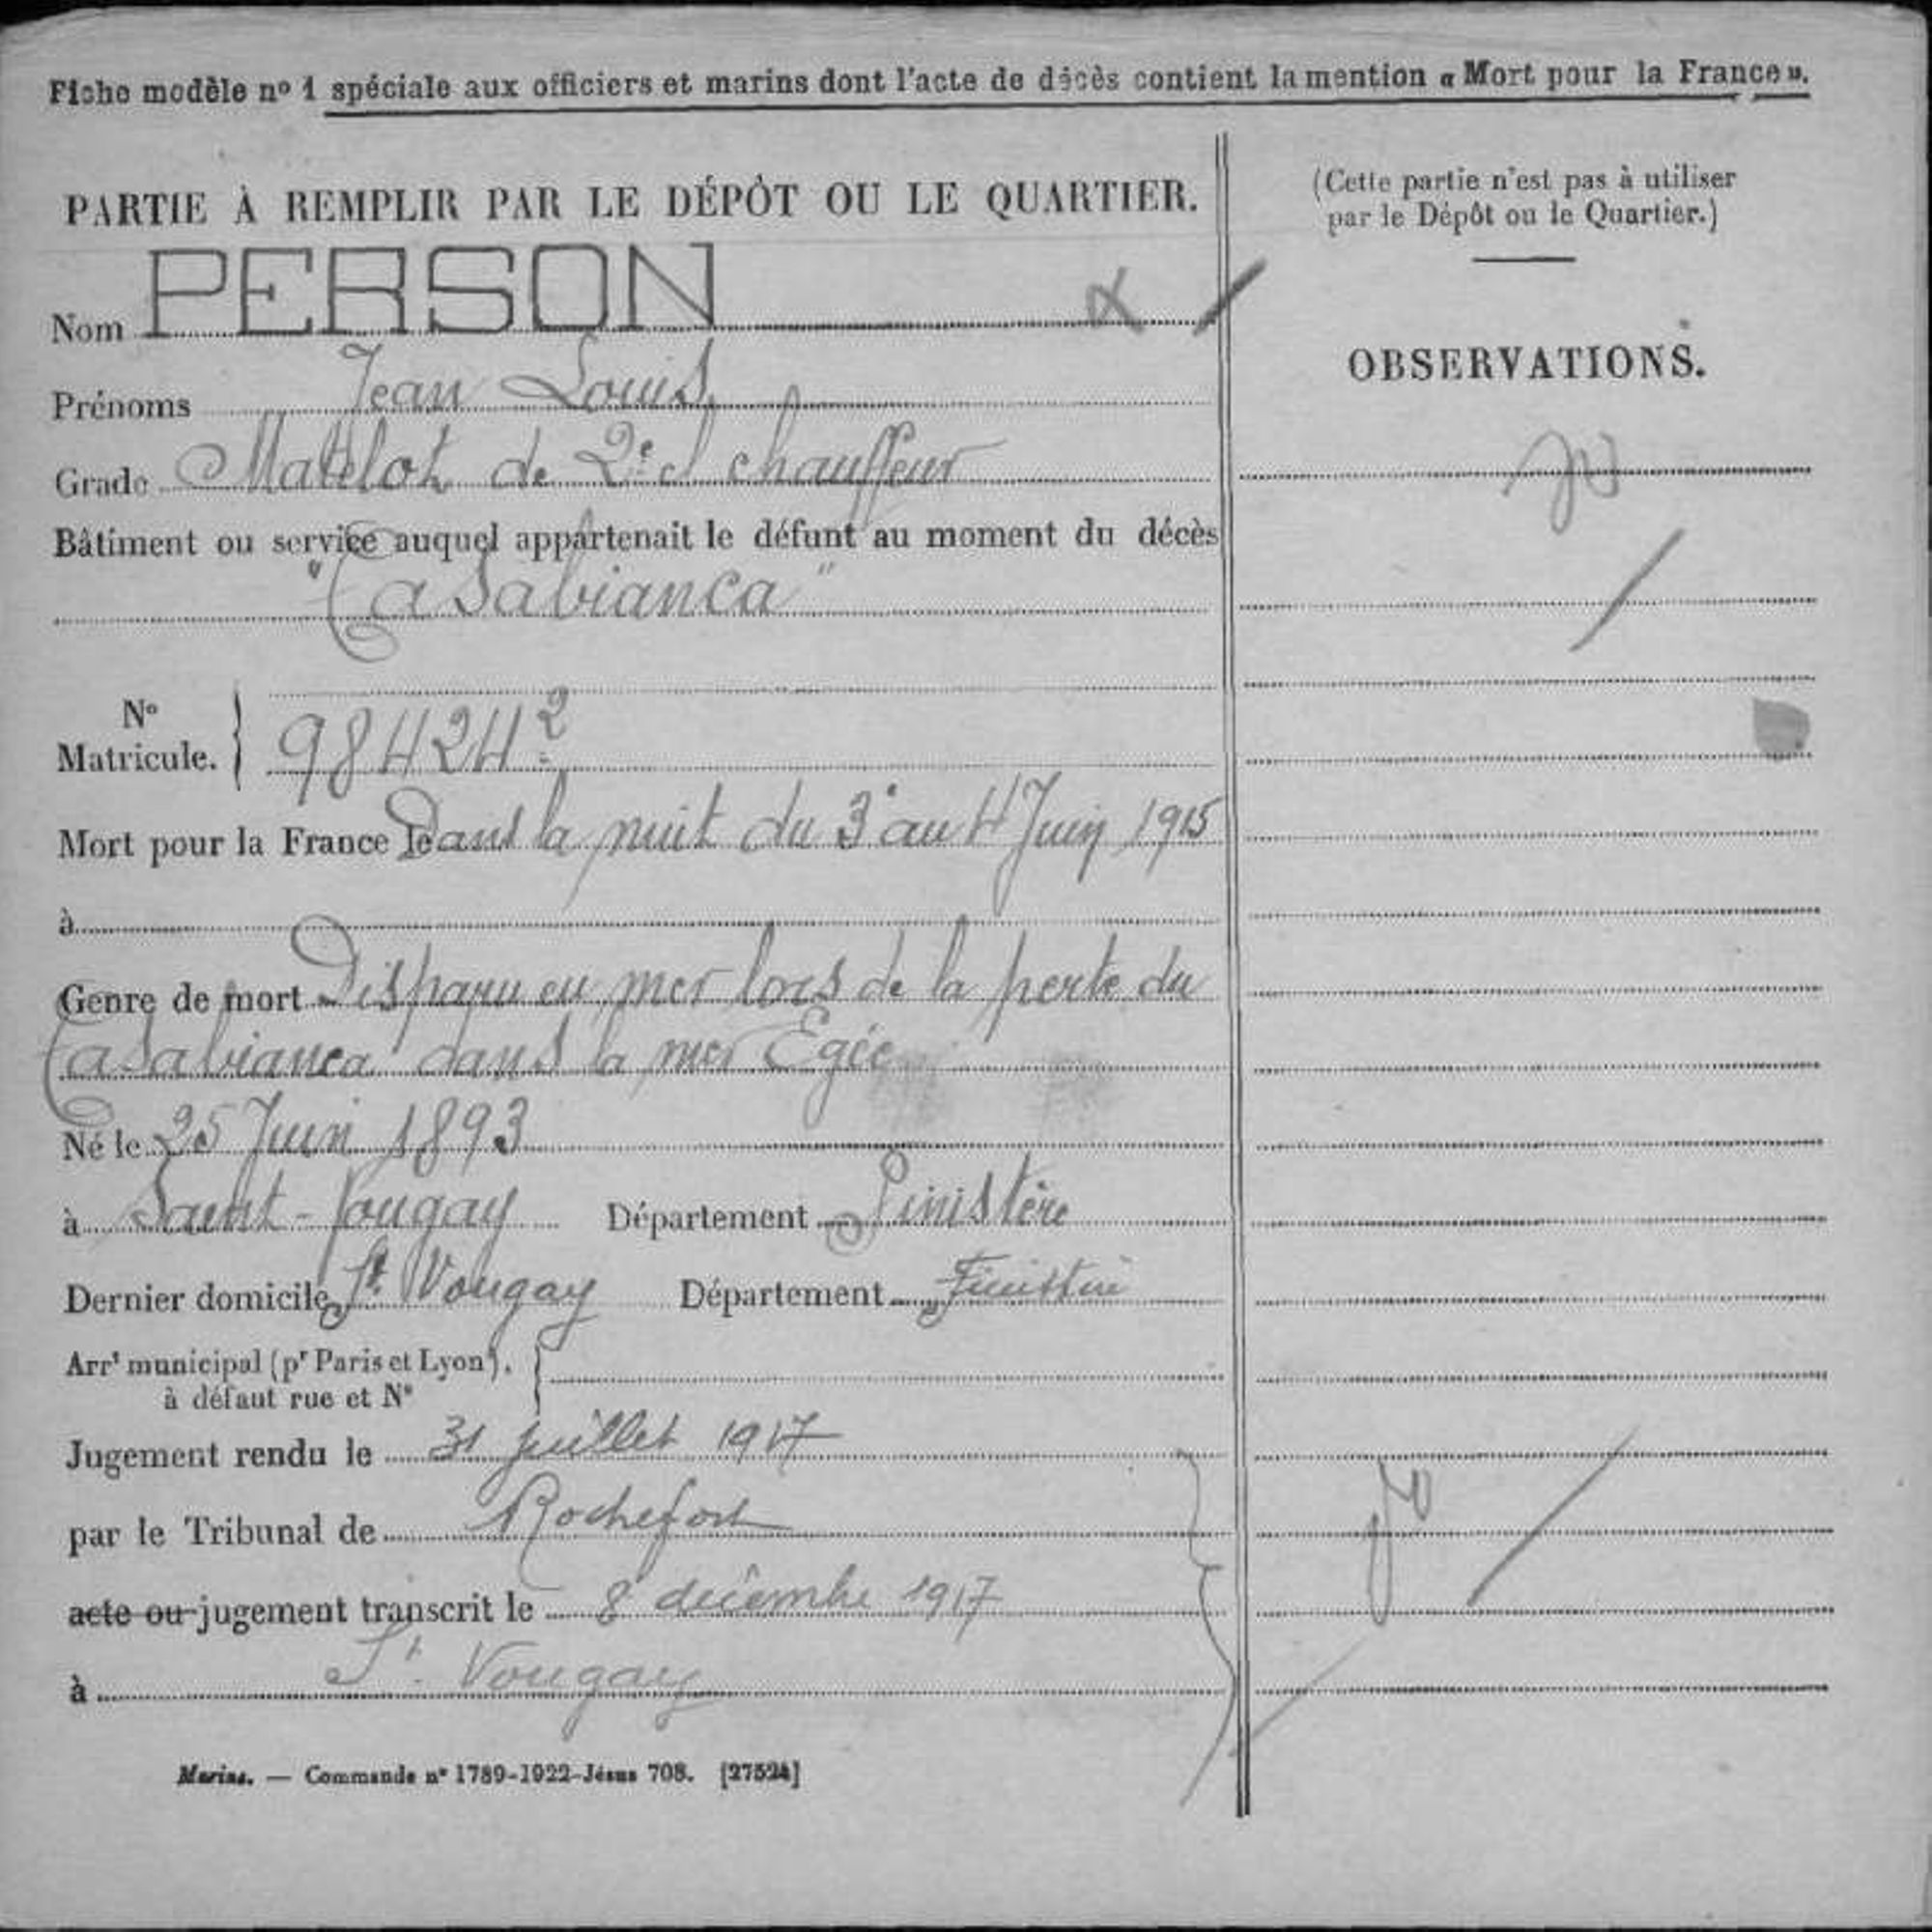 Fiche modèle nº 1 spéciale aux officiers et marins dont l'acte de décès contient la mention « Mort pour la France ».
PARTIE À REMPLIR PAR LE DÉPÔT OU LE QUARTIER.
Nom PERSON
Prénoms Jean Louis
Grade Matelot de 2e cl chauffeur
Bâtiment ou service auquel appartenait le défunt au moment du décès
"Casabianca"
Nº Matricule. } 98424 2
Mort pour la France le Dans la nuit du 3 au 4 Juin 1915
à
Genre de mort Disparu en mer lors de la perte du
Casabianca dans la mer Egée
Né le 25 Juin 1893
à Saint-Vougay Département Finistère
Dernier domicile St Vougay Département Finistère
Arrt municipal (pr Paris et Lyon),
à défaut rue et Nº
Jugement rendu le 31 juillet 1917
par le Tribunal de Rochefort
acte ou jugement transcrit le 8 décembre 1917
à St Vougay
Marine. — Commande nº 1789-1922-Jésus 708. [27524]
(Cette partie n'est pas à utiliser
par le Dépôt ou le Quartier.)
OBSERVATIONS.